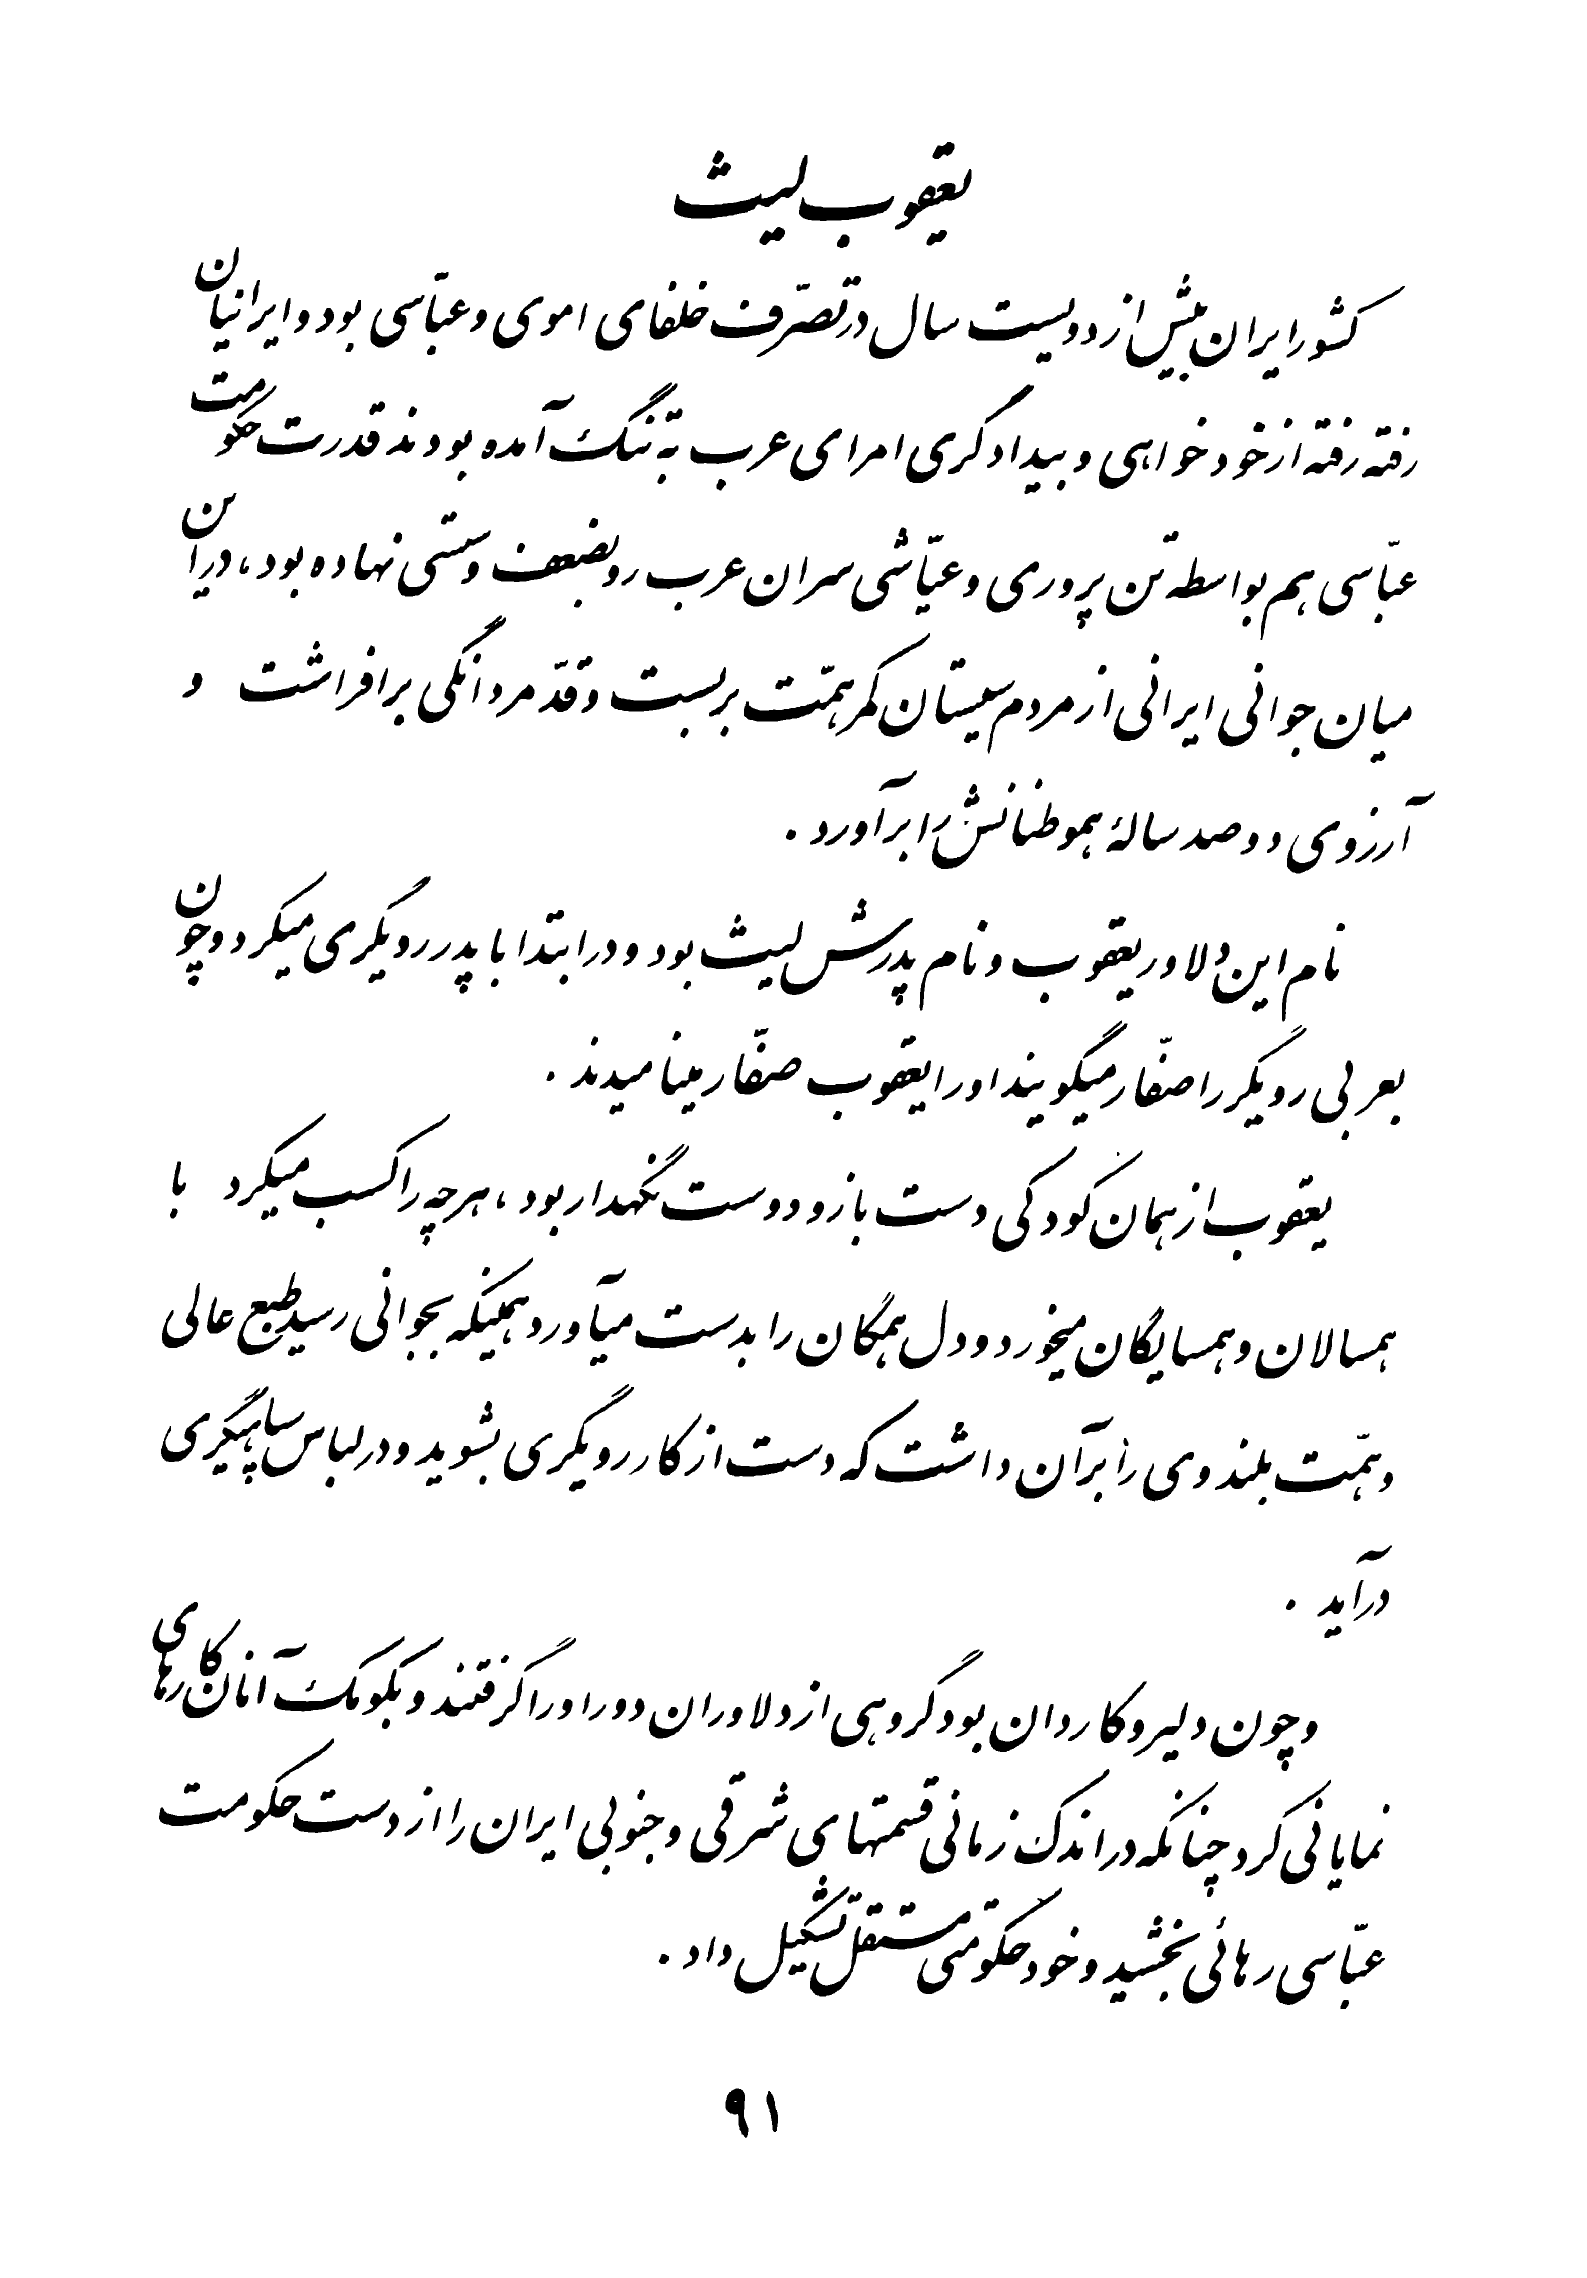 یعقوب لیث
کشور ایران بیش از دویست سال در تصرّف خلفای اموی و عبّاسی بود و ایرانیان
رفته رفته از خودخواهی و بیدادگری امرای عرب به تنگ آمده بودند قدرت حکومت
عبّاسی هم بواسطه تن پروری و عیّاشی سران عرب رو بضعف و سستی نهاده بود، در این
میان جوانی ایرانی از مردم سیستان کمر همّت بربست و قدّ مردانگی برافراشت و
آرزوی دوصد سالهٔ هموطنانش را برآورد.
نام این دلاور یعقوب و نام پدرش لیث بود و در ابتدا با پدر رویگری میکرد و چون
بعربی رویگر را صفّار میگویند او را یعقوب صفّار مینامیدند.
یعقوب از همان کودکی دست باز و دوست نگهدار بود، هرچه را کسب میکرد با
همسالان و همسایگان میخورد و دل همگان را بدست میآورد همینکه بجوانی رسید طبع عالی
و همّت بلند وی را بر آن داشت که دست از کار رویگری بشوید و در لباس سپاهیگری
درآید.
و چون دلیر و کاردان بود گروهی از دلاوران دور او را گرفتند و بکومک آنان کارهای
نمایانی کرد چنانکه در اندک زمانی قسمتهای شرقی و جنوبی ایران را از دست حکومت
عبّاسی رهائی بخشید و خود حکومتی مستقل تشکیل داد.
۹۱